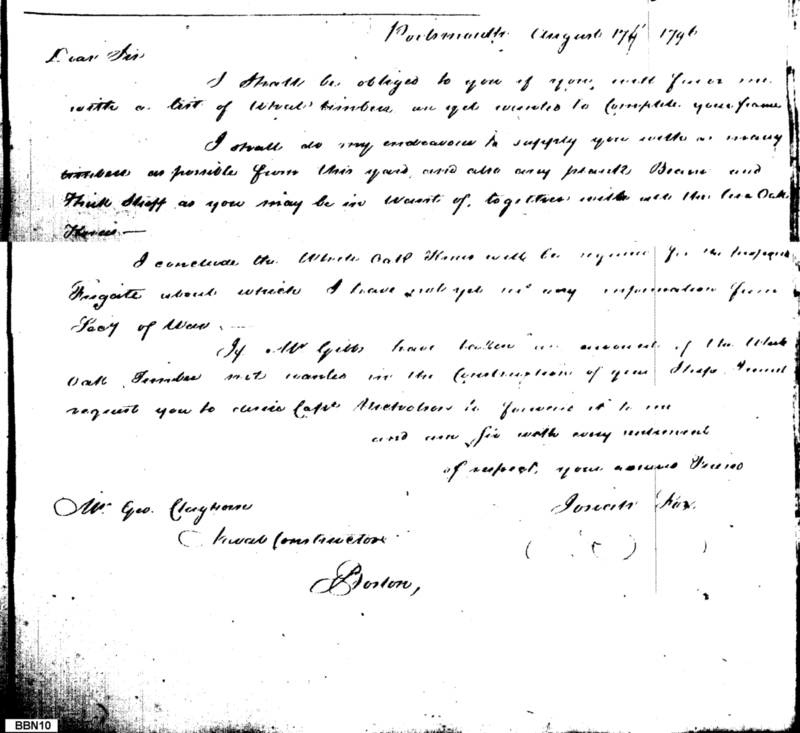 Portsmouth August 17th 1796
Dear Sir
I shall be obliged to you if you will favor me
with a list of what timbers are yet wanted to complete your frame
I shall do my endeavour to supply you with as many
timbers as possible from this yard and also any plank Beams and
Thick Stuff as you may be in want of, together with all the live Oak
Knees —
I conclude the White Oak Knees will be required for the
Frigate about which I have not yet any information from
Secy of War —
If Mr Gibbs have taken an account of the White
Oak Timber not wanted in the Construction of your Ship I must
request you to desire Capt Nicholson to forward it to me
and am Sir with every sentiment
of respect, your assured Friend
Mr Geo. Claghorn Josiah Fox.
Naval Constructor
Boston,
BBN10